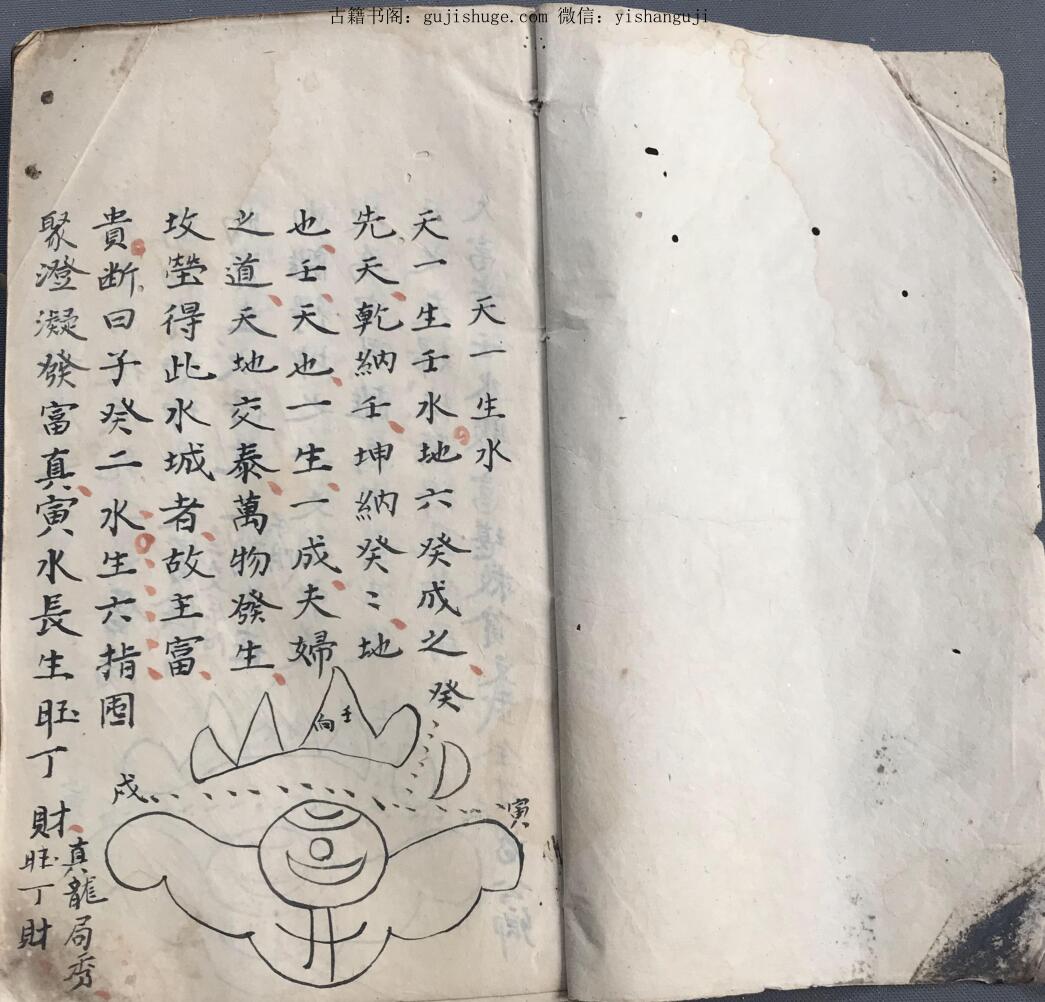 古籍书阁：gujishuge.com 微信：yishanguji
天一生水
天一生壬水地六癸成之
先天乾納壬坤納癸〻地
也壬天也一生一成夫婦
之道天地交泰萬物發生
坟塋得此水城者故主富
貴断曰子癸二水生六指囤
聚澄凝發富真寅水長生旺丁財
真龍局秀
旺丁財
癸
壬
向
戍
寅